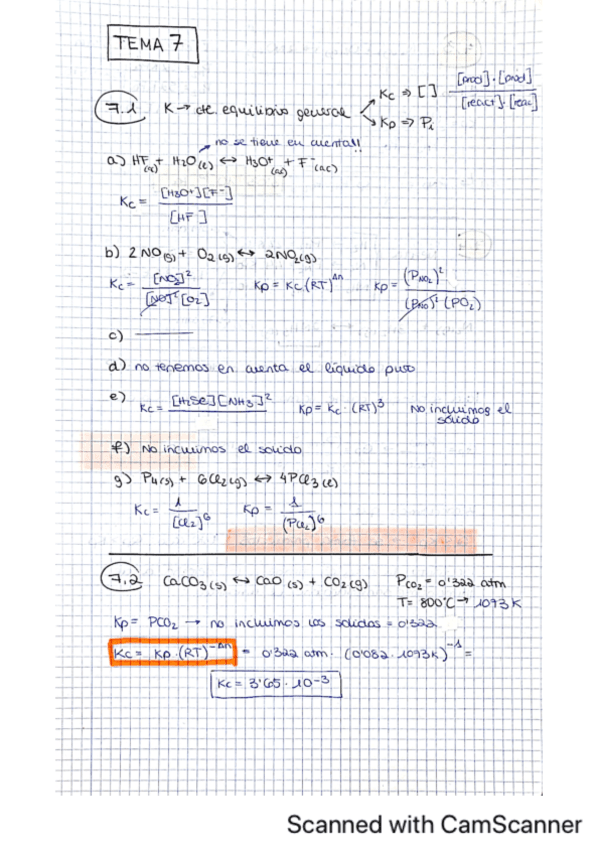 TEMA 7
7.1 K → cte. equilibrio general
Kc ⇒ [ ] [prod]·[prod] / [react]·[reac]
Kp ⇒ Pi
no se tiene en cuenta!!
a) HF(ac) + H2O(l) ↔ H3O+(ac) + F-(ac)
Kc = [H3O+][F-] / [HF]
b) 2NO(g) + O2(g) ↔ 2NO2(g)
Kc = [NO2]² / [NO]² [O2] Kp = Kc (RT)^Δn Kp = (PNO2)² / (PNO)² (PO2)
c)
d) no tenemos en cuenta el líquido puro
e) Kc = [H2Se][NH3]² Kp = Kc · (RT)³ No incluimos el sólido
f) No incluimos el sólido
g) P4(s) + 6Cl2(g) ↔ 4PCl3(l)
Kc = 1 / [Cl2]⁶ Kp = 1 / (PCl2)⁶
7.2 CaCO3(s) ↔ CaO(s) + CO2(g) PCO2 = 0'322 atm
T = 800°C → 1073K
Kp = PCO2 → no incluimos los sólidos = 0'322
Kc = Kp · (RT)^-Δn = 0'322 atm · (0'082 · 1073K)^-1 =
Kc = 3'65 · 10^-3
Scanned with CamScanner